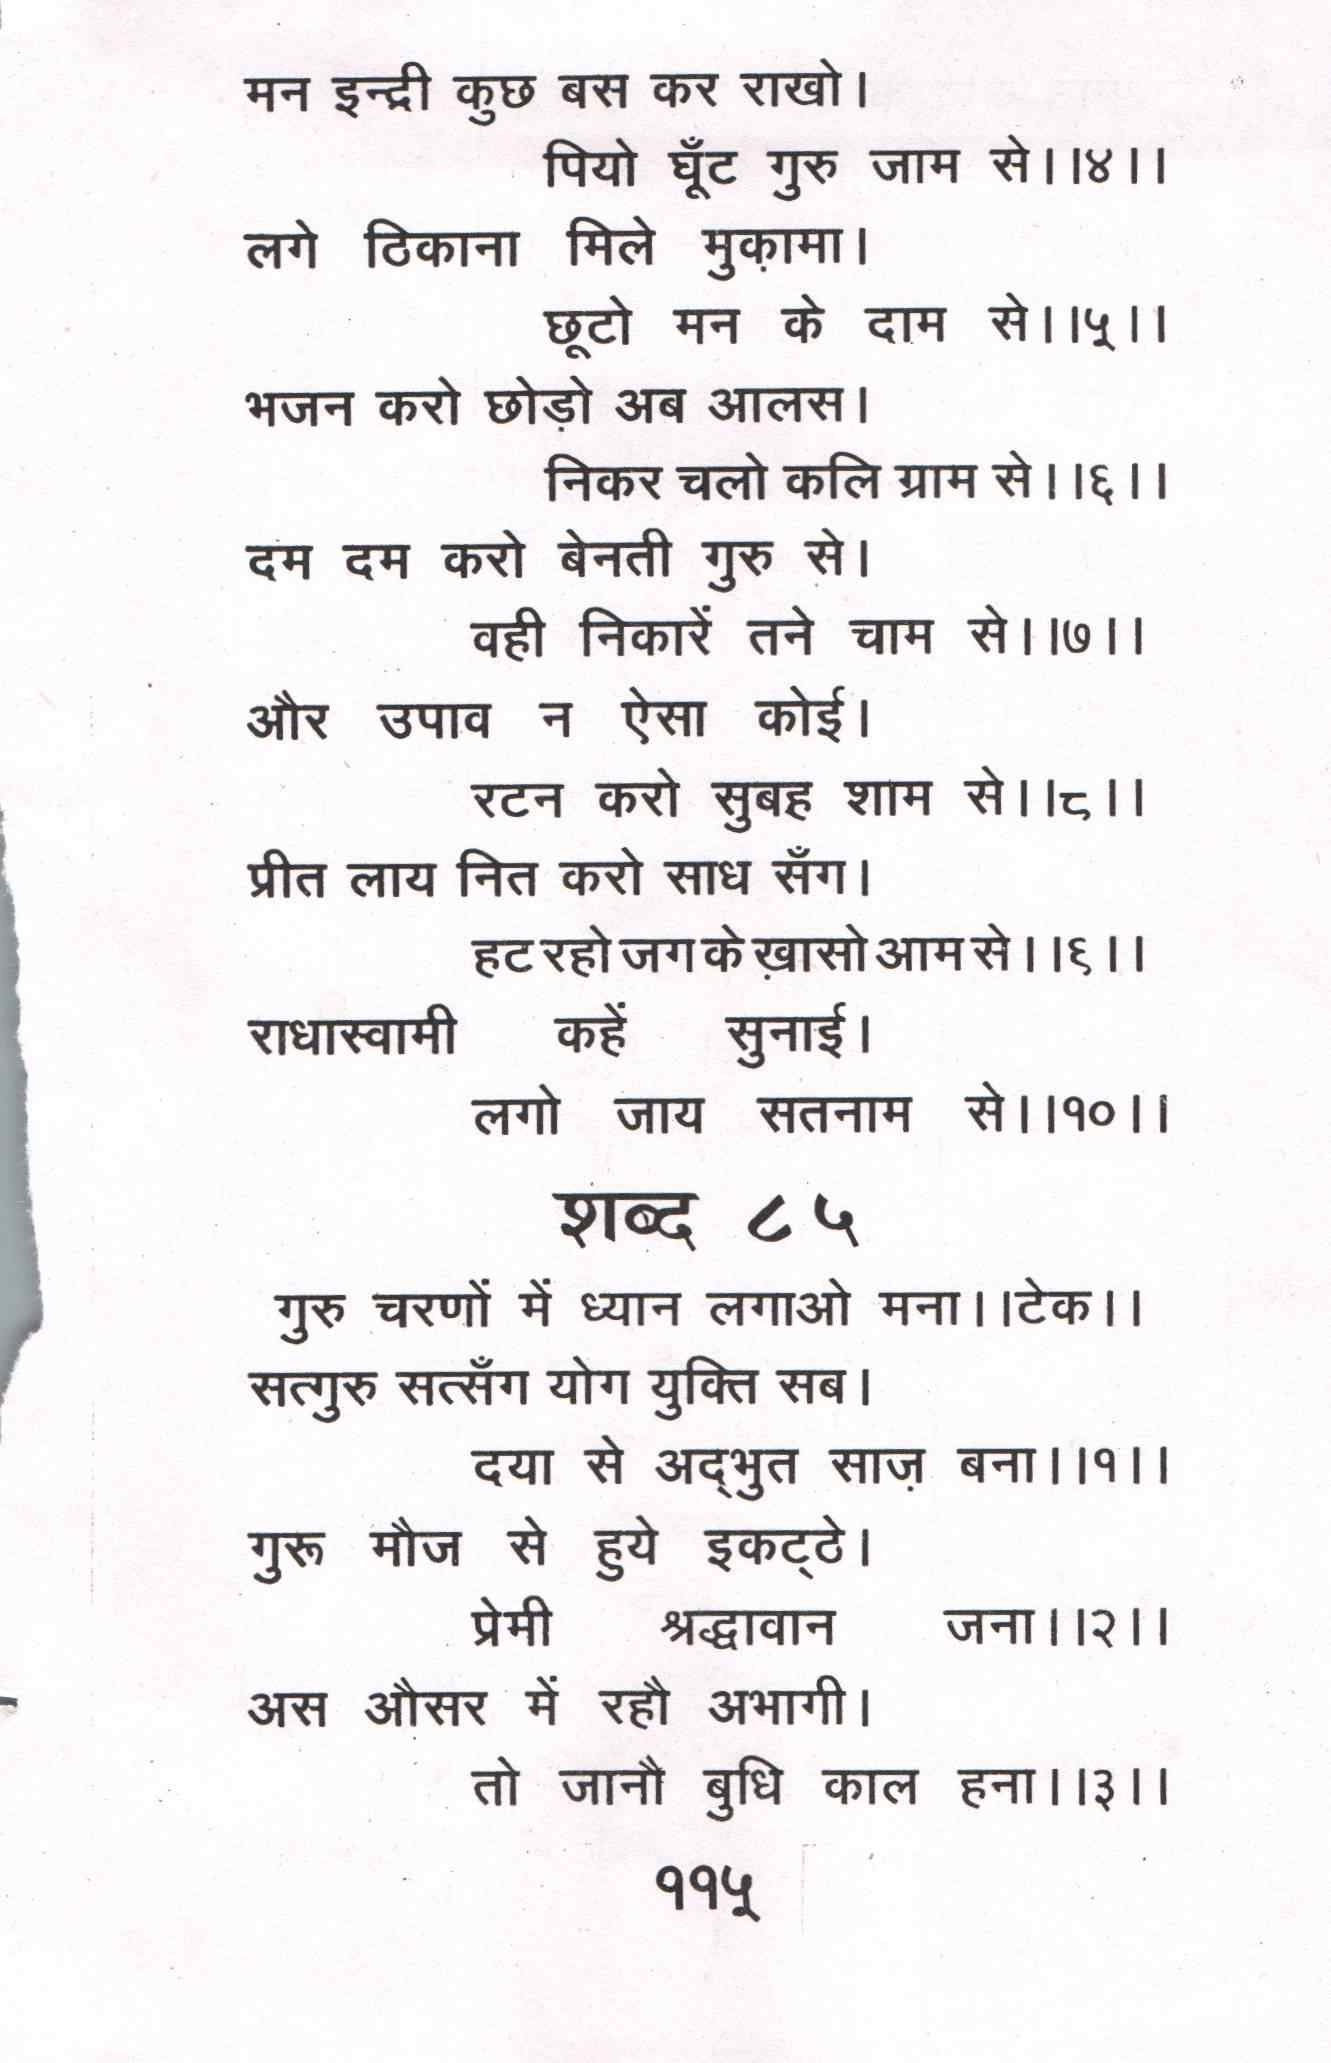 मन इन्द्री कुछ बस कर राखो।
पियो घूँट गुरु जाम से।।४।।
लगे ठिकाना मिले मुक़ामा।
छूटो मन के दाम से।।५।।
भजन करो छोड़ो अब आलस।
निकर चलो कलि ग्राम से।।६।।
दम दम करो बेनती गुरु से।
वही निकारें तने चाम से।।७।।
और उपाव न ऐसा कोई।
रटन करो सुबह शाम से।।८।।
प्रीत लाय नित करो साध सँग।
हट रहो जग के ख़ासो आम से।।९।।
राधास्वामी कहें सुनाई।
लगो जाय सतनाम से।।१०।।
शब्द ८५
गुरु चरणों में ध्यान लगाओ मना।।टेक।।
सत्गुरु सत्सँग योग युक्ति सब।
दया से अद्‌भुत साज़ बना।।१।।
गुरू मौज से हुये इकट्‌ठे।
प्रेमी श्रद्धावान जना।।२।।
अस औसर में रहौ अभागी।
तो जानौ बुधि काल हना।।३।।
११५